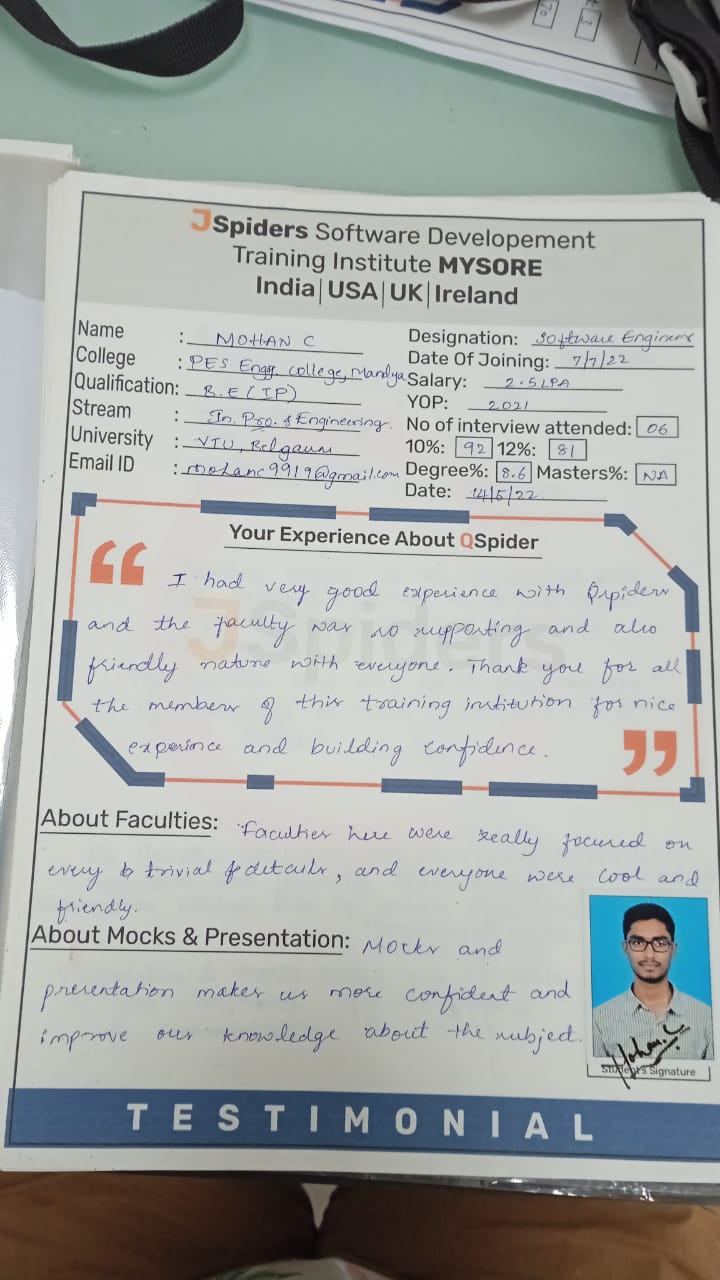 JSpiders Software Developement
Training Institute MYSORE
India|USA|UK|Ireland
Name : MOHAN C
College : PES Engg. college, Mandya
Qualification: B.E (IP)
Stream : In. Pro. & Engineering.
University : VTU, Belgaum
Email ID : mohanc9919@gmail.com
Designation: Software Engineer
Date Of Joining: 7/7/22
Salary: 2.5 LPA
YOP: 2021
No of interview attended: 06
10%: 92 12%: 81
Degree%: 8.6 Masters%: NA
Date: 14/5/22
Your Experience About QSpider
“ I had very good experience with Qspiders
and the faculty was so supporting and also
friendly nature with everyone. Thank you for all
the members of this training institution for nice
experince and building confidence. ”
About Faculties: Faculties here were really focused on
every trivial details, and everyone were cool and
friendly.
About Mocks & Presentation: Mocks and
presentation makes us more confident and
improve our knowledge about the subject.
Mohan.C
Student's Signature
TESTIMONIAL